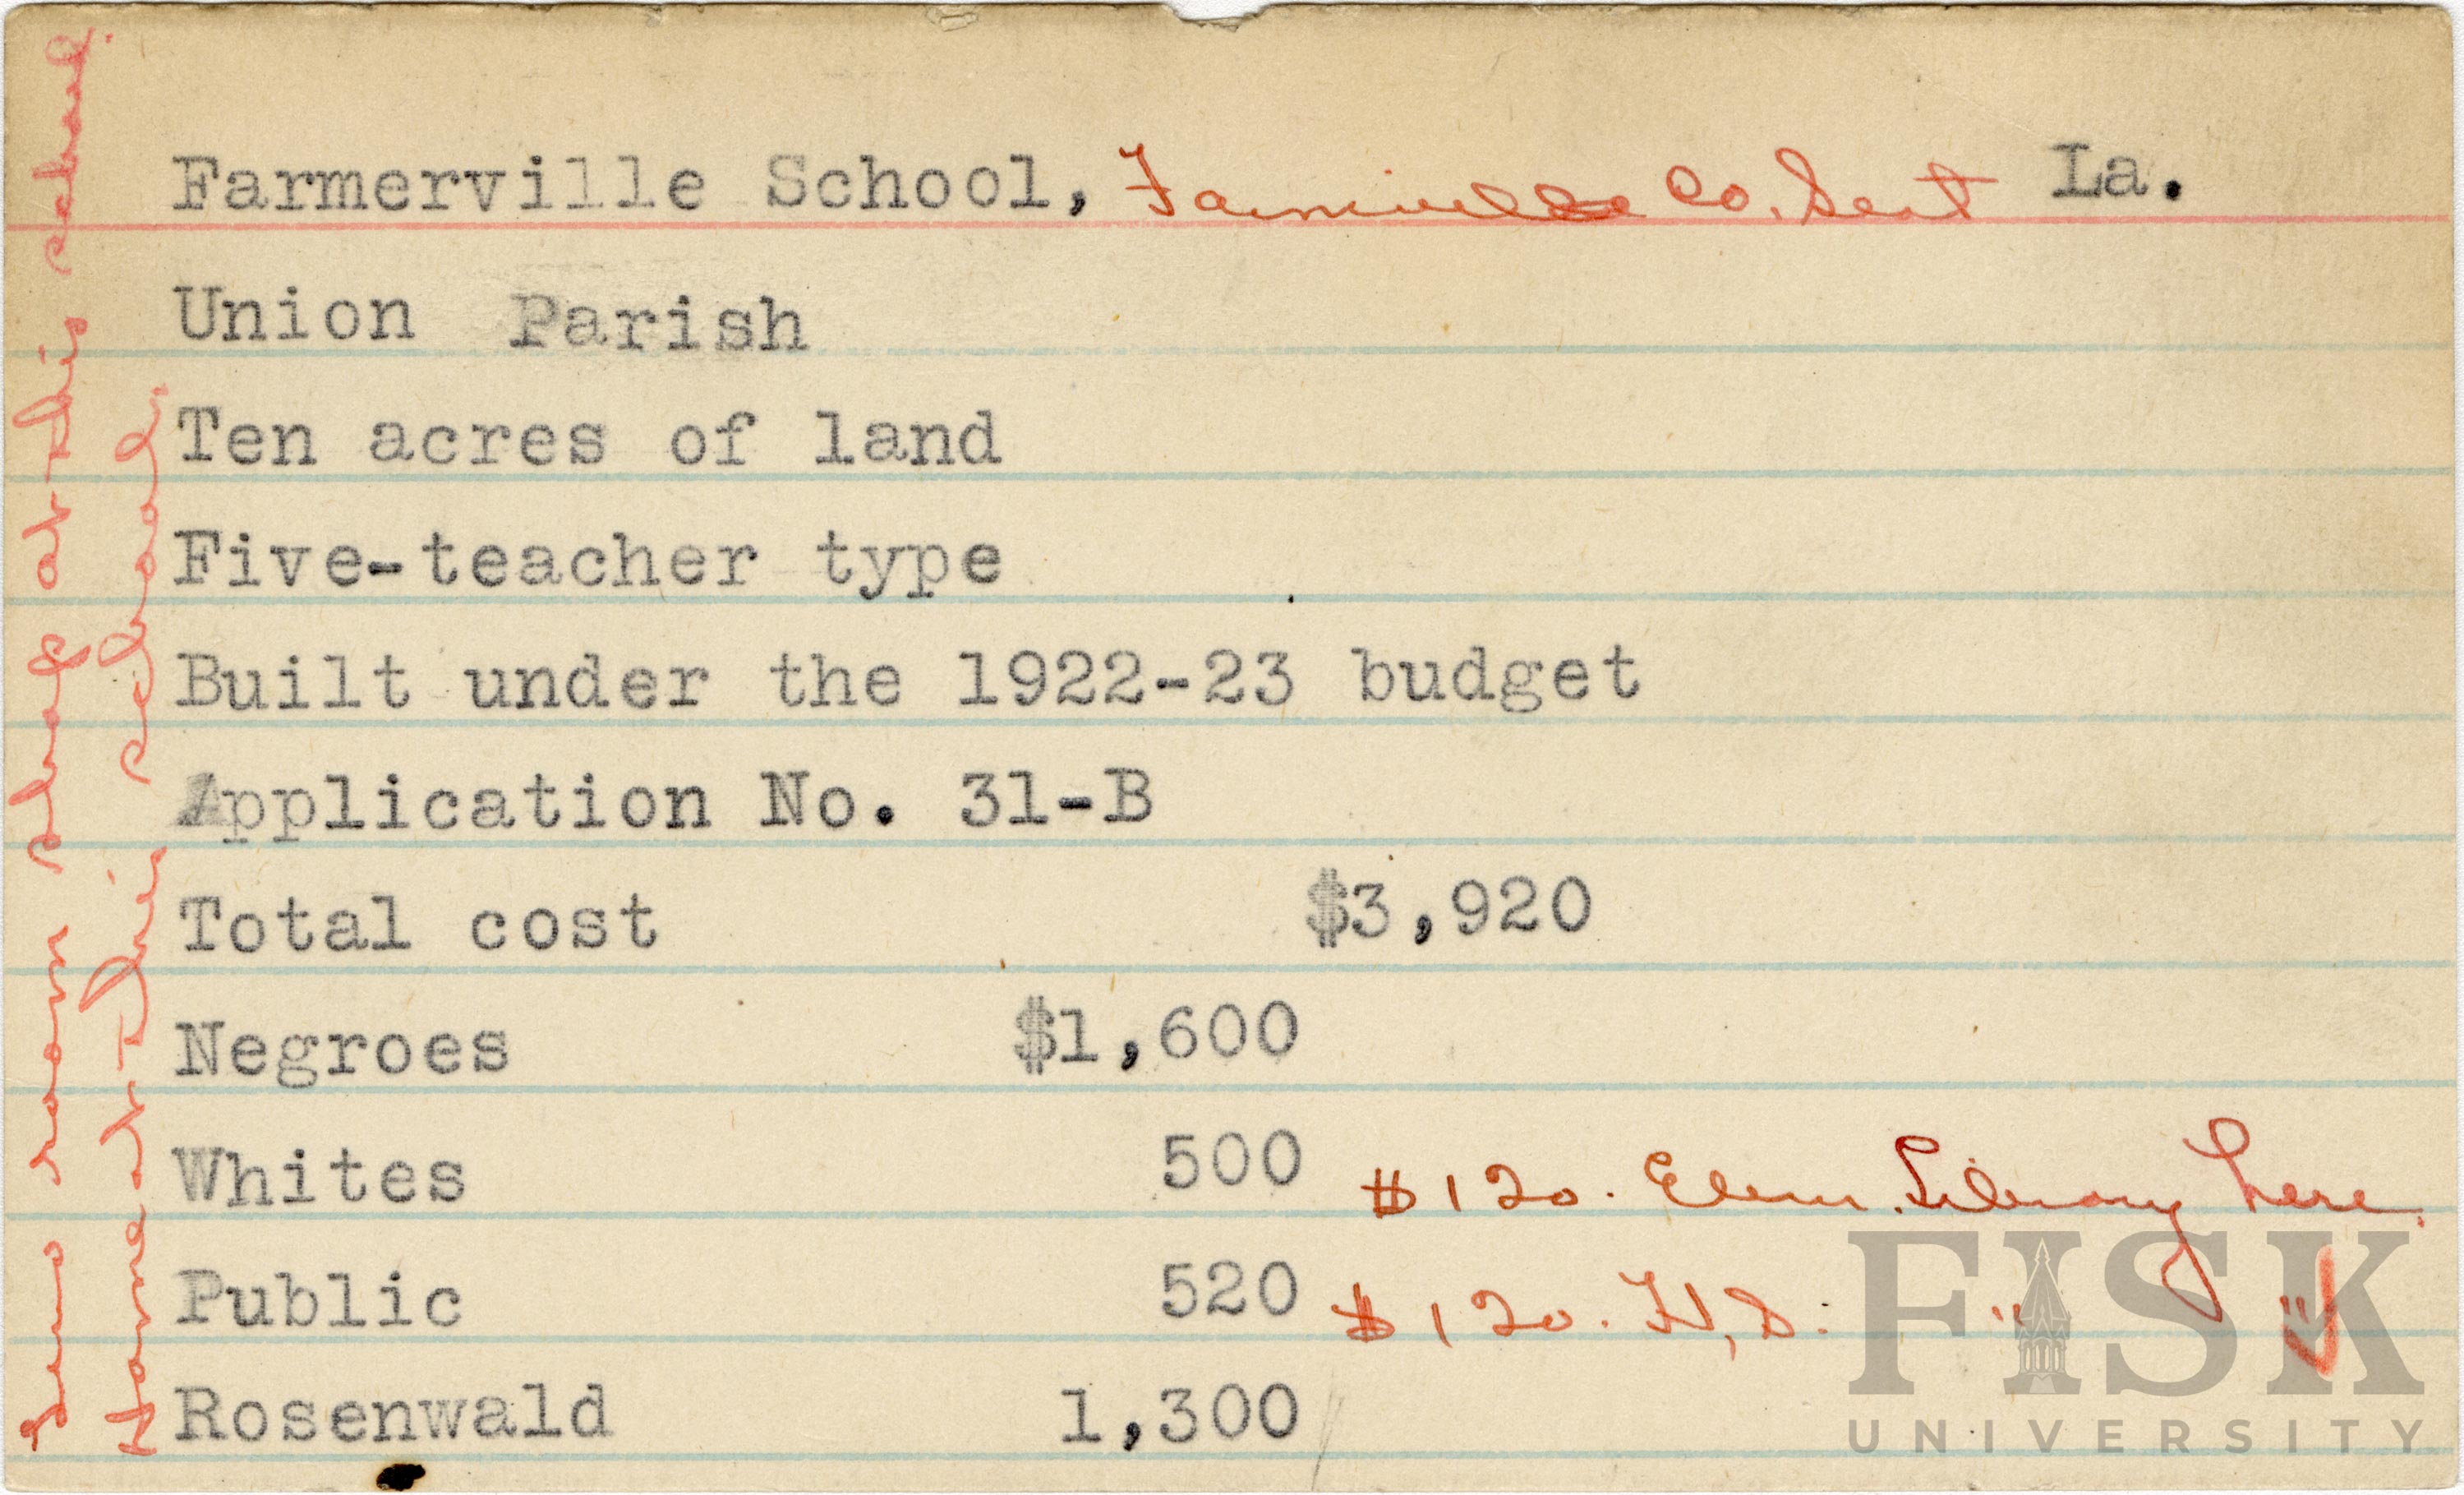 Farmerville School, Farmerville Co. Seat La.
Union Parish
Ten acres of land
Five-teacher type
Built under the 1922-23 budget
Application No. 31-B
Total cost $3,920
Negroes $1,600
Whites 500 $120. Elem. Library here.
Public 520 $120. H.S. " "
Rosenwald 1,300
Two room shop at this school.
Home at this school.
FISK
UNIVERSITY